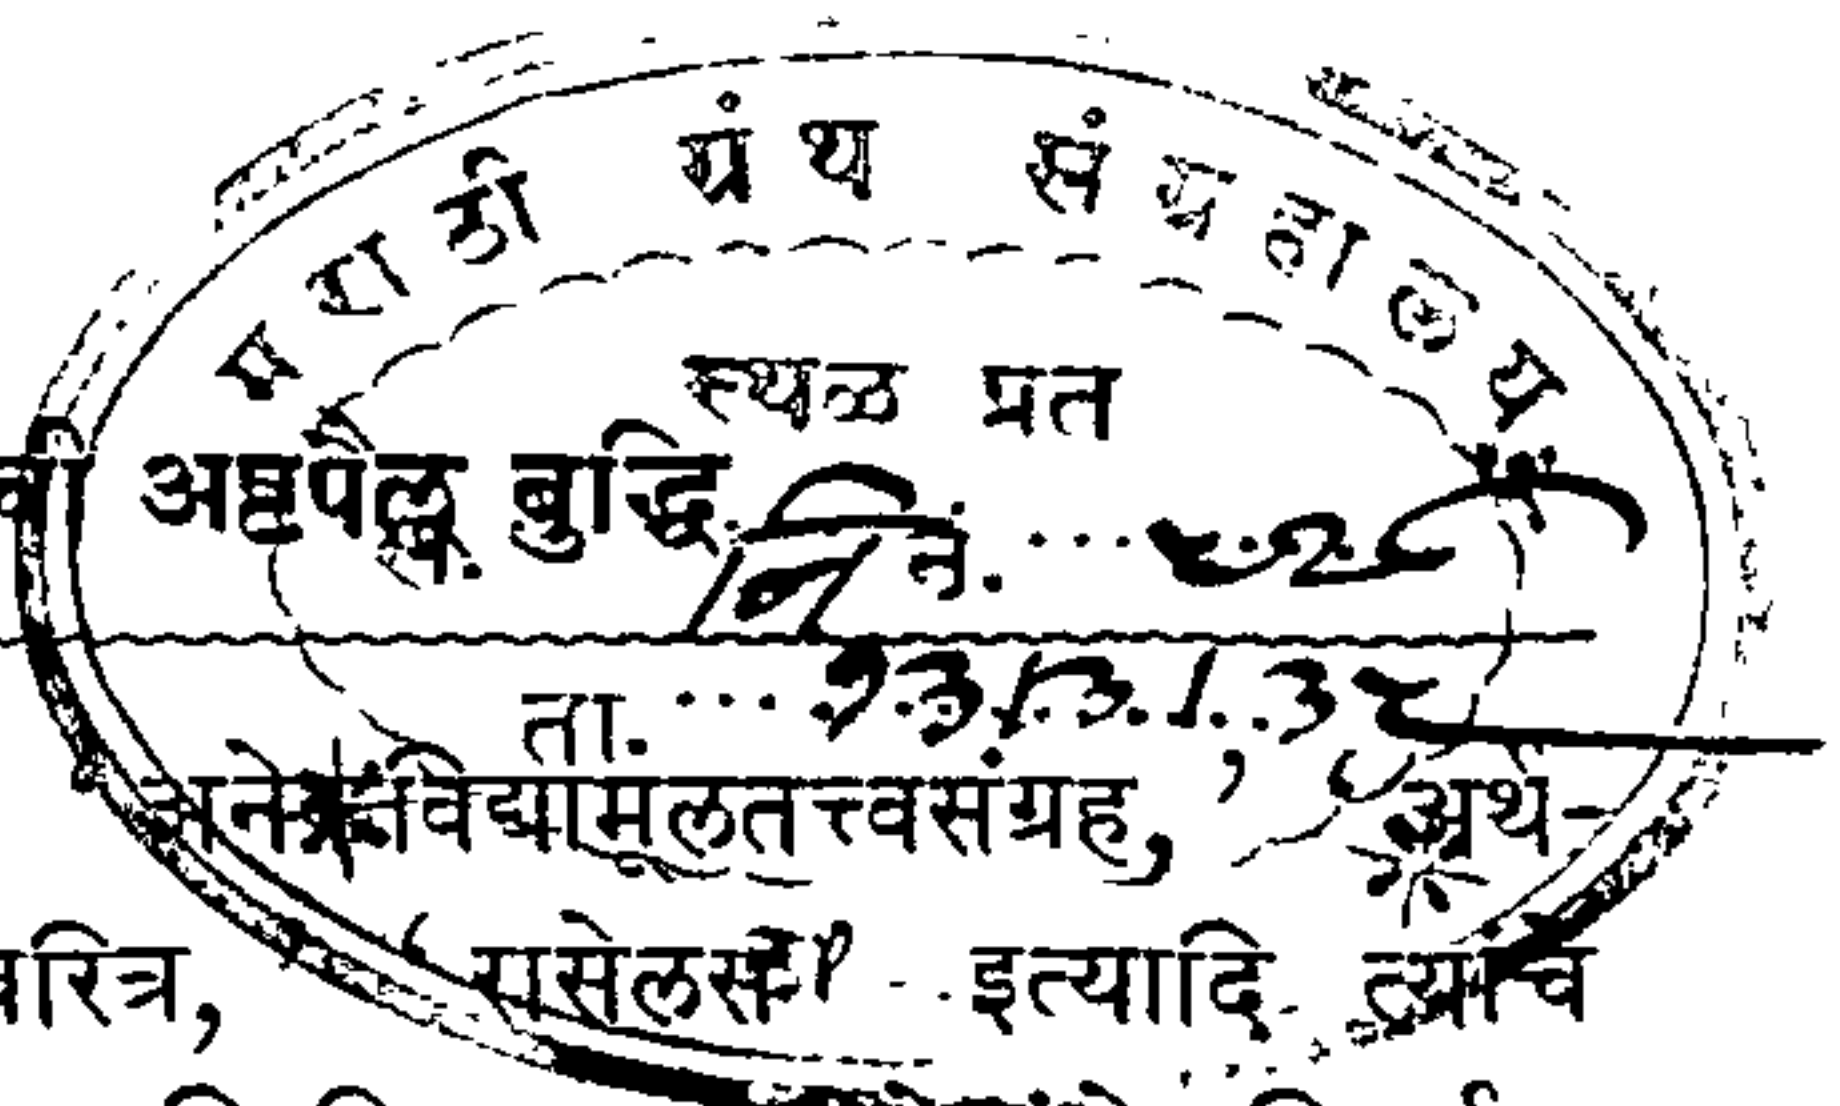 मराठी ग्रंथ संग्रहालय
स्थळ प्रत
अष्टपैलू बुद्धि
नं. ...
ता. ... १३/३/३५
अनेकविद्यामूलतत्त्वसंग्रह, अर्थ-
चरित्र, ‘ रासेलस ’ इत्यादि त्यांचे